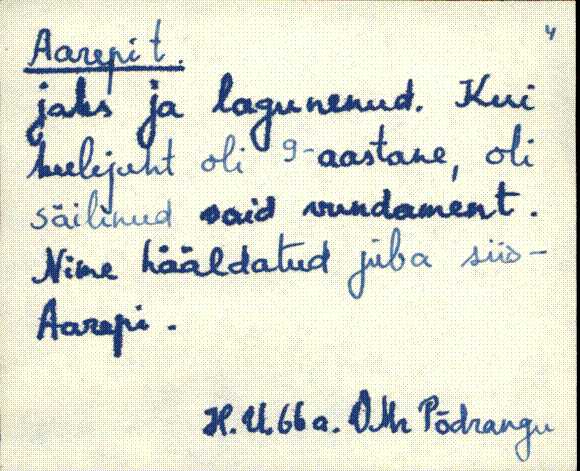 4
Aarepit.
jaks ja lagunenud. Kui
keelejuht oli 9-aastane, oli
säilinud vaid vundament.
Nime hääldatud juba siis -
Aarepi.
H. U. 66 a. VMr Põdrangu